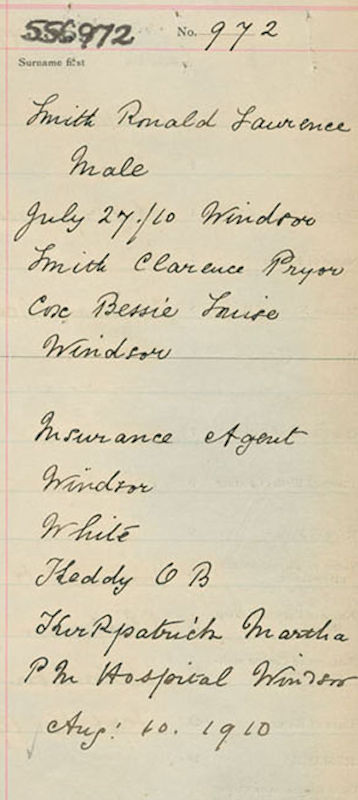 556972 No. 972
Surname first
Smith Ronald Laurence
Male
July 27/10 Windsor
Smith Clarence Pryor
Cox Bessie Louise
Windsor
Insurance Agent
Windsor
White
Keddy O B
Kirkpatrick Martha
P M Hospital Windsor
Aug: 10. 1910